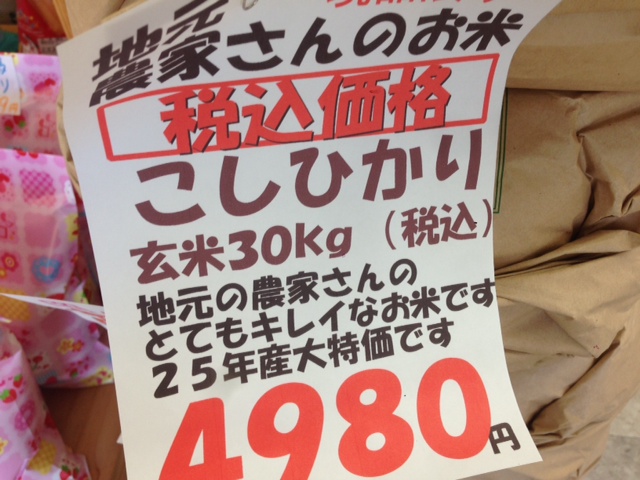 地元
農家さんのお米
税込価格
こしひかり
玄米30kg（税込）
地元の農家さんの
とてもキレイなお米です
25年産大特価です
4980円